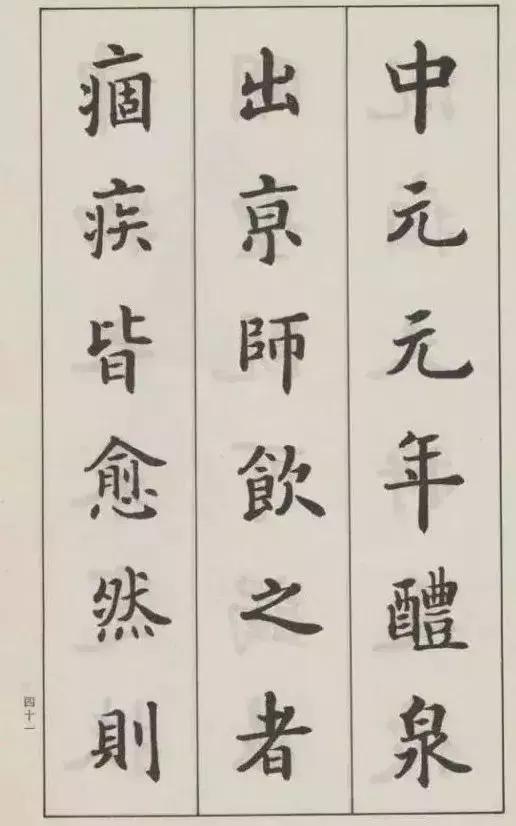 中元元年醴泉
出京師飲之者
痼疾皆愈然則
四十一